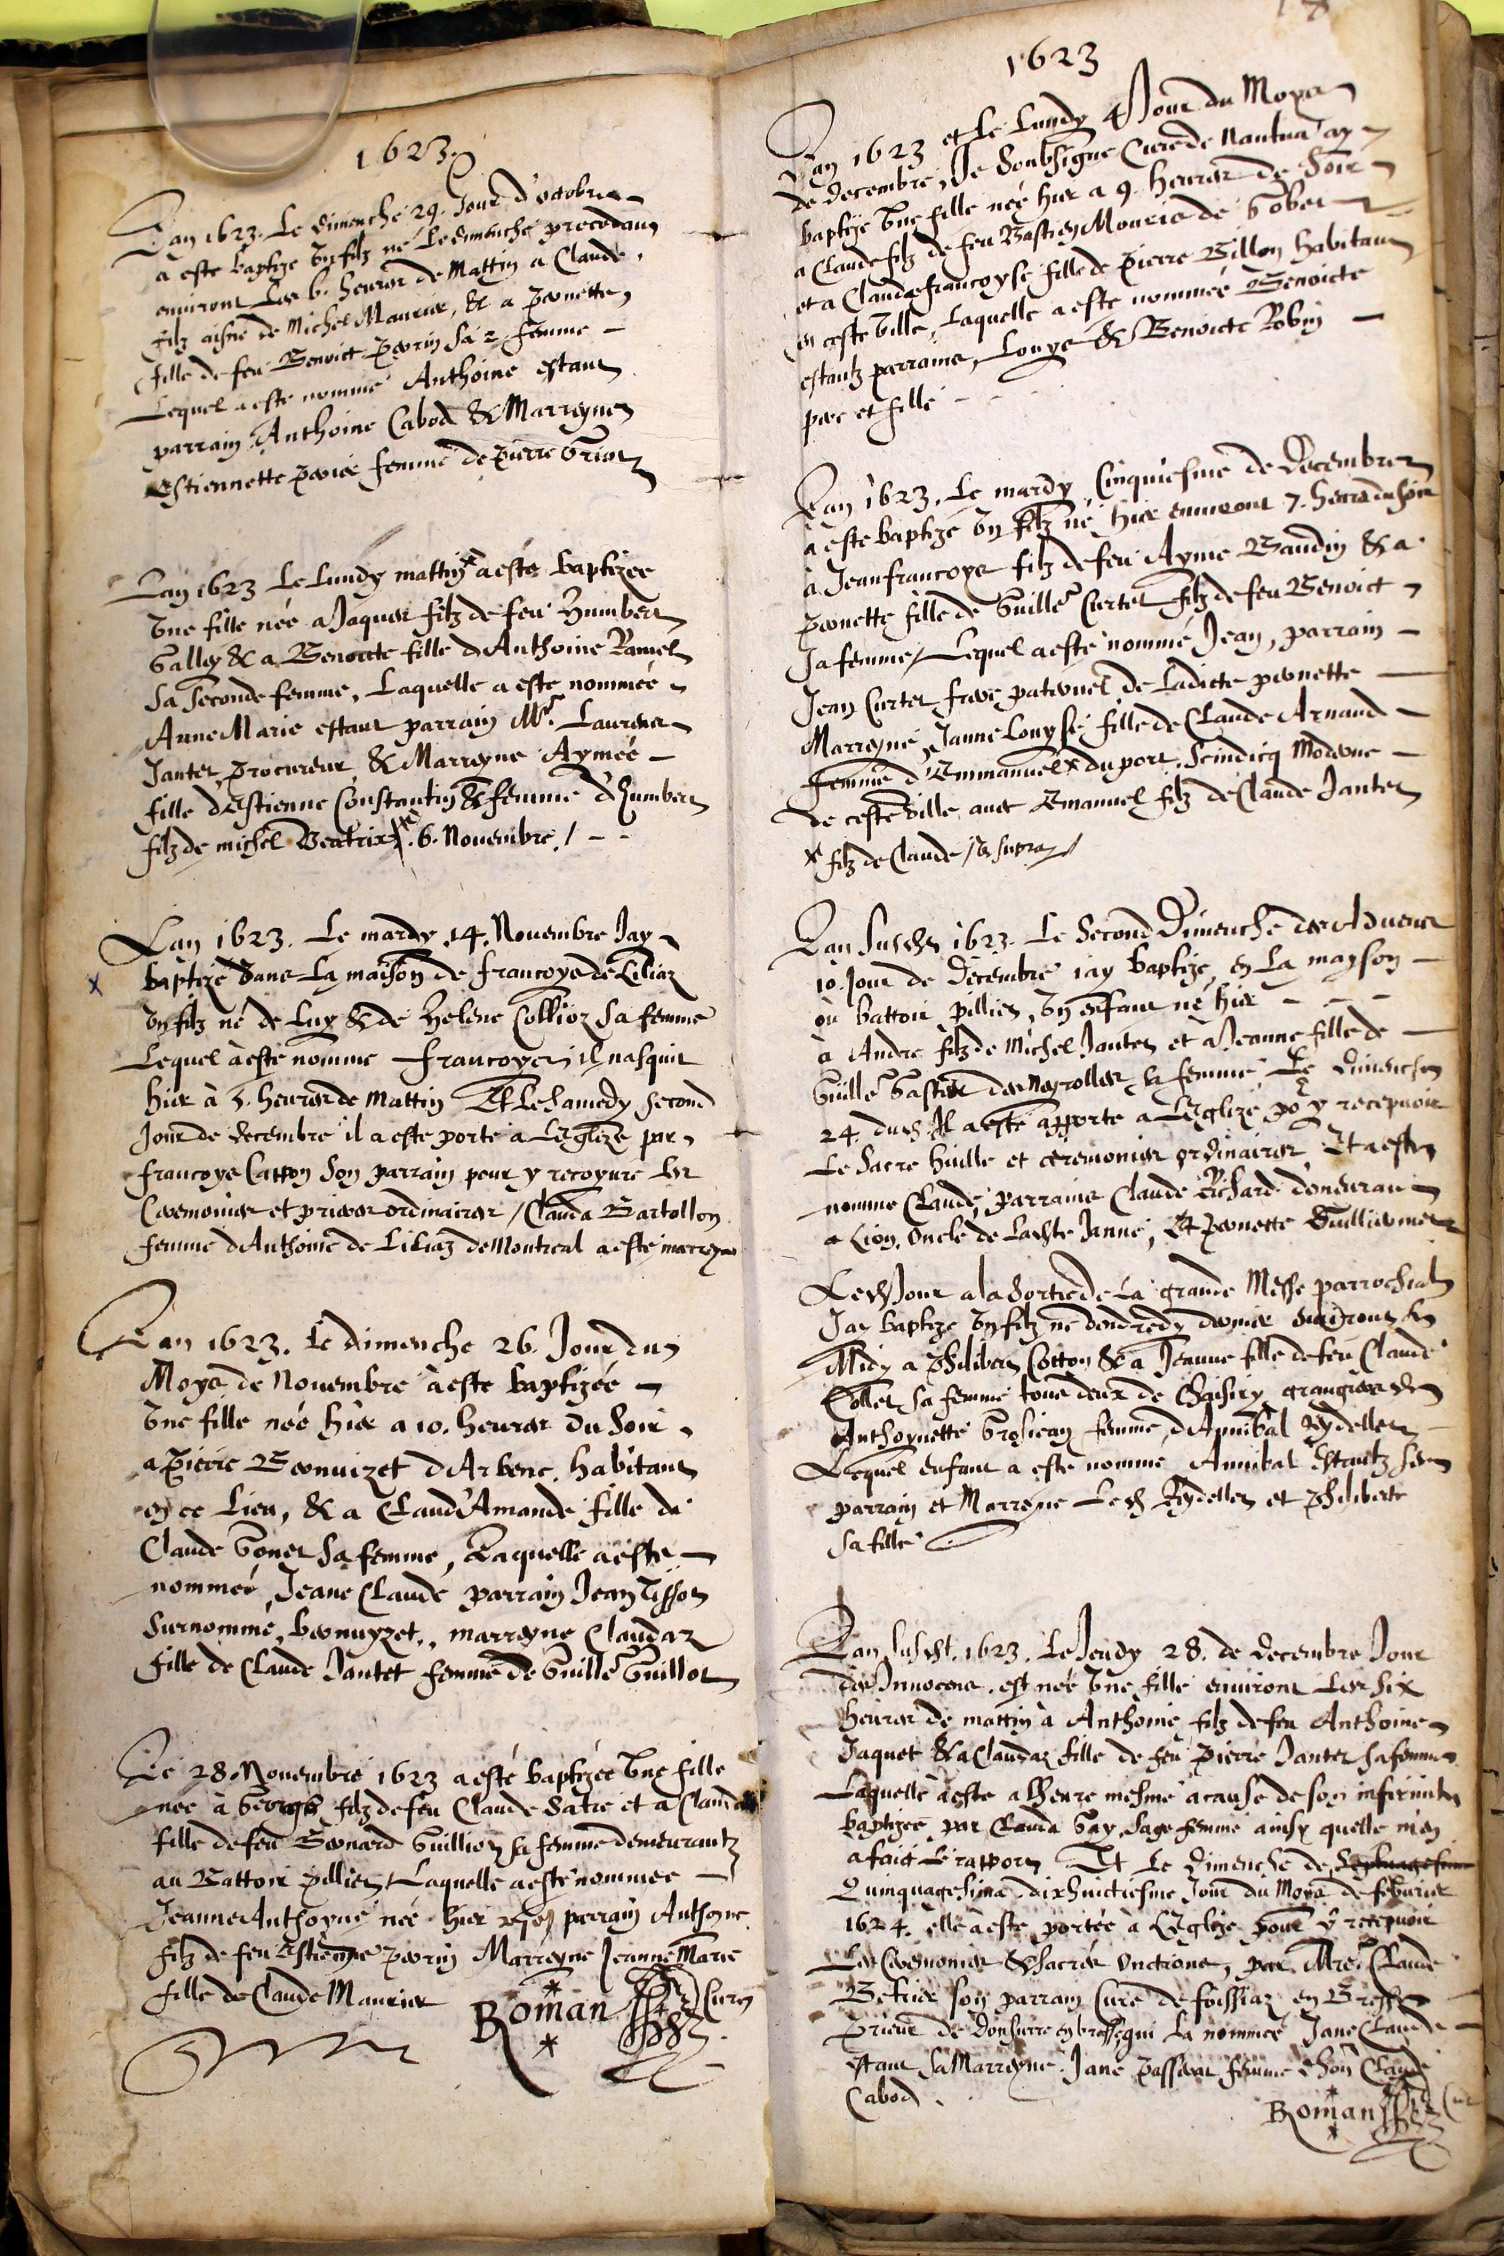 1623.
Lan 1623. Le dimenche 29. Jour d'octobre
a este baptize Un filz né Le dimenche precedant
environt Les 6. heures de Mattin a Claude,
filz aisne de Michel Maurier, & a pernette
fille de feu Benoict perrin sa 2. femme
Lequel a este nomme Anthoine estant
parrain Anthoine Cabod & Marreyne
Estiennette femme de pierre
Lan 1623 Le Lundy mattin a este baptizee
Une fille née a Jaques filz de feu Humbert
Galley & a Benoicte fille d'Anthoine Ramel
Sa Seconde femme, Laquelle a este nommée
Anne Marie estant parrain Mr. Laurens
Jantet procureur & Marreyne Aymée
fille d'Estienne Constantin & femme d'humbert
filz de michel Beatrix . 6. Novembre /
Lan 1623. Le mardy 14. Novembre Jay
baptizé dans La maison de francoys de Liliaz
Un filz né de Luy & de Helene Collioz sa femme
Lequel à este nomme francoys il nasquit
hier à 5. heures de mattin Et Le Samedy second
Jour de decembre il a este porte a L'Eglize par
francoys Catton son parrain pour y recoyure Les
Ceremonies et prieres ordinaires / Clauda Bartollon
femme d'Anthoine de Liliaz de Montreal a este marreyne
Lan 1623. Le dimenche 26. Jour du
Moys de Novembre à este baptizée
Une fille née hier a 10. heures du soir
a pierre Bernuizet d'Arbenc, habitant
en ce Lieu, & a Claud'Amande fille de
Claude Gonet sa femme, Laquelle a este
nommée Jeane Claude parrain Jean Tissot
surnommé, bernuyzet, marreyne Claudaz
fille de Claude Jantet femme de Guille Guillot
Le 28 Novembre 1623 a esté baptizée Une fille
née à George filz de feu Claude Satre et a Clauda
fille de feu Bernard Guillion sa femme demeurantz
au Battoir pillier Laquelle a este nommee
Jeanne Anthoyne née hier parrain Anthoyne
filz de feu Estienne perrin Marreyne Jeanne Marie
fille de Claude Maurier
Roman Curé
1623
Lan 1623 et Le Lundy 4 Jour du Moys
de decembre, Je Soubsigne Curé de Nantua ay
baptizé Une fille née hier a 9. heures de soir
a Claude filz de feu Bastien Mourier de
et a Claudafrancoyse fille de pierre Billon habitant
en ceste Ville, Laquelle a este nommée Benoicte
estantz parrains, Louys & Benoicte Robin
pere et fille
Lan 1623. Le mardy Cinquiesme de Decembre
a este baptizé Un filz né hier environt 7. heures du soir
à Jeanfrancoys filz de feu Ayme Baudin & a
pernette fille de Guille Curtet filz de feu Benoict
sa femme, Lequel a este nommé Jean, parrain
Jean Curtet frere paternel de Ladicte pernette
Marreyne Janne Louyse fille de Claude Arnaud
femme d'Emmanuel x duport, Scindicq Moderne
de ceste Ville avec Emanuel filz de Claude Jantet
x filz de Claude / Ut supra /
Lan Susdit 1623. Le Second Dimenche des Advent
10. Jour de Decembre iay baptize, en La mayson
ou battoir pillier, Un enfant né hier
à Andre filz de Michel Jantet et a Jeanne fille de
Guille des Neyrolles sa femme Le dimenche
24. dudit Il a este apporte a L'Eglize po y recepvoir
Le Sacre huille et ceremonies ordinaires Et a este
nomme Claude, parrains Claude Richard demeurant
a Lion, Oncle de Ladite Janne, Et pernette
Ledit Jour a la Sortie de La grande Messe parrochiale
Jay baptize Un filz né Vendredy dernier environt Le
Midy a philibert Cotton & a Jeanne fille de feu Claude
Collet sa femme tous deux de grangiers de
Anthoynette femme d'Annibal Reydellet
Lequel enfant a este nomme Annibal Estantz ses
parrain et Marreyne Ledit Reydellet et philiberte
sa fille
Lan Susdit. 1623. Le Jeudy 28. de decembre Jour
des Innocens. est née Une fille environt Les six
heures de mattin à Anthoine filz de feu Anthoine
Jaquet & a Claudaz fille de feu pierre Jantet sa femme
Laquelle à este a lheure mesme à cause de son infirmité
baptizee par Clauda Gay, Sage femme ainsy quelle m'en
a faict Le rapport Et Le Dimenche de Septuagesime
Quinquagesima dixhuictiesme Jour du Moys de febvrier
1624. elle à este portée à L'Eglize pour y recepvoir
Les Ceremonies & sacrés Unctions, par Mre Claude
son parrain Curé de foissiaz en Bresse
Prieur de Donsurre en bresse qui La nommée Jane Claude
estant sa Marreyne Jane femme Claude
Cabod.
Roman Curé